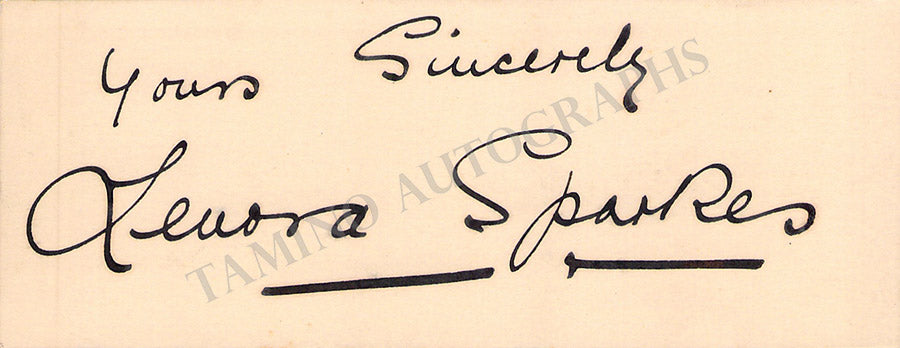 Yours Sincerely
Lenora Sparkes
TAMINO AUTOGRAPHS